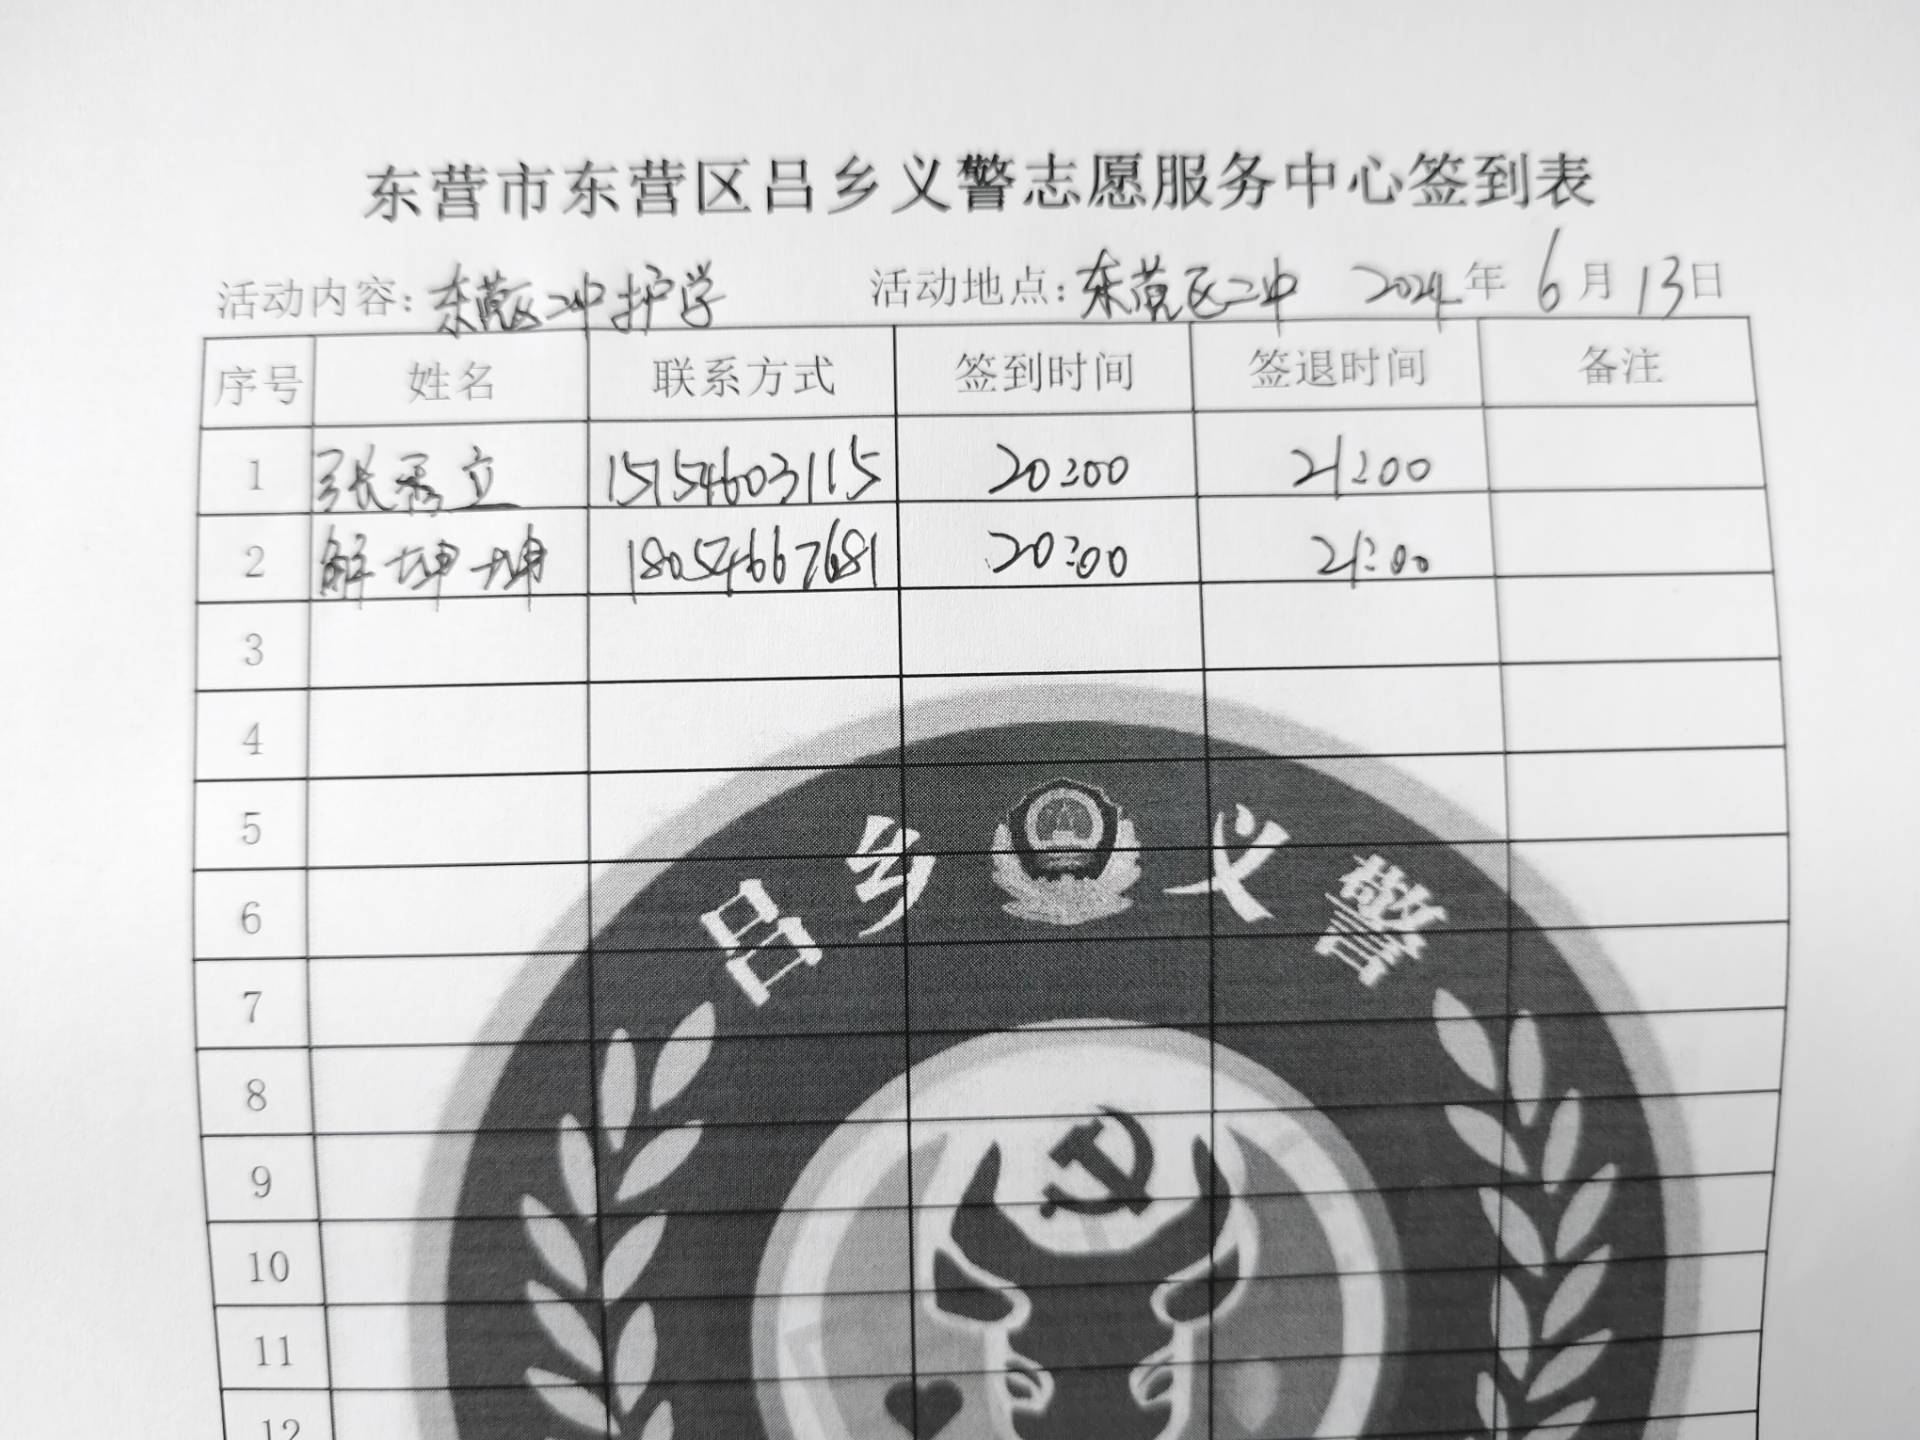 东营市东营区吕乡义警志愿服务中心签到表
活动内容:东营区二中护学 活动地点:东营区二中 2024年6月13日
序号 姓名 联系方式 签到时间 签退时间 备注
1 张秀立 15154603115 20:00 21:00
2 解坤坤 18054667681 20:00 21:00
3
4
5
6
7
8
9
10
11
12
吕乡义警